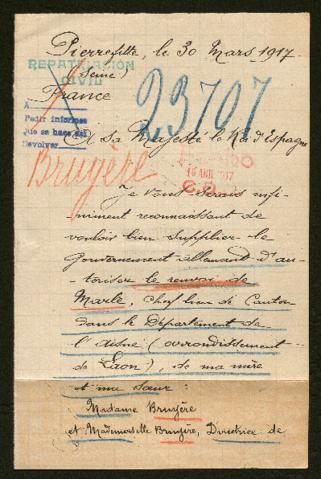 Pierrefitte, le 30 Mars 1917
REPATRIACIÓN
CIVIL
(Seine)
France
23707
A
Pedir informes
Que se hace del
Devolver
A sa Majesté le Roi d'Espagne
Bruyère
16 ABR. 1917
Je vous serais infi-
niment reconnaissant de
vouloir bien supplier le
Gouvernement allemand d'au-
toriser le renvoi de
Marle, chef lieu de Canton
dans le Département de
l'Aisne (arrondissement
de Laon), de ma mère
et ma sœur :
Madame Bruyère
et Mademoiselle Bruyère, Directrice de